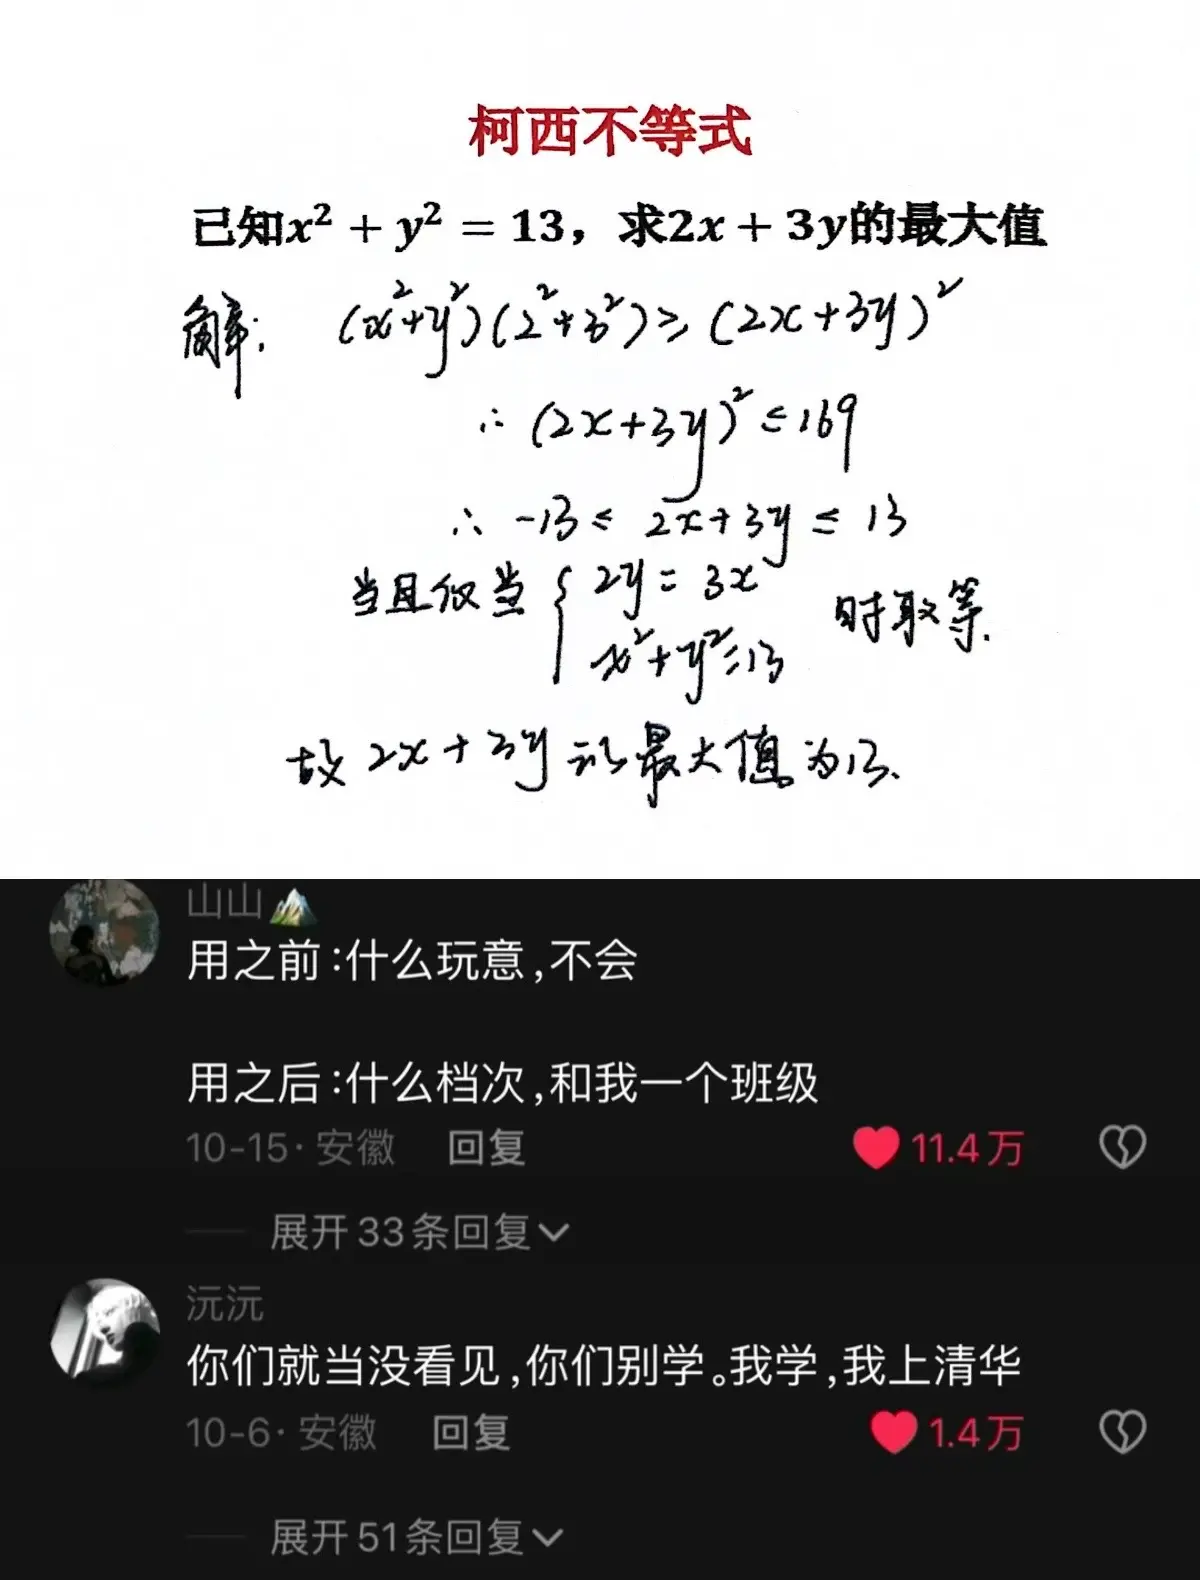 柯西不等式
已知x²+y²=13，求2x+3y的最大值
解: (x²+y²)(2²+3²)≥(2x+3y)²
∴(2x+3y)²≤169
∴-13≤2x+3y≤13
当且仅当{2y=3x
x²+y²=13 时取等.
故2x+3y的最大值为13.
山山⛰️
用之前:什么玩意,不会
用之后:什么档次,和我一个班级
10-15·安徽 回复 11.4万
展开33条回复
沅沅
你们就当没看见,你们别学。我学,我上清华
10-6·安徽 回复 1.4万
展开51条回复